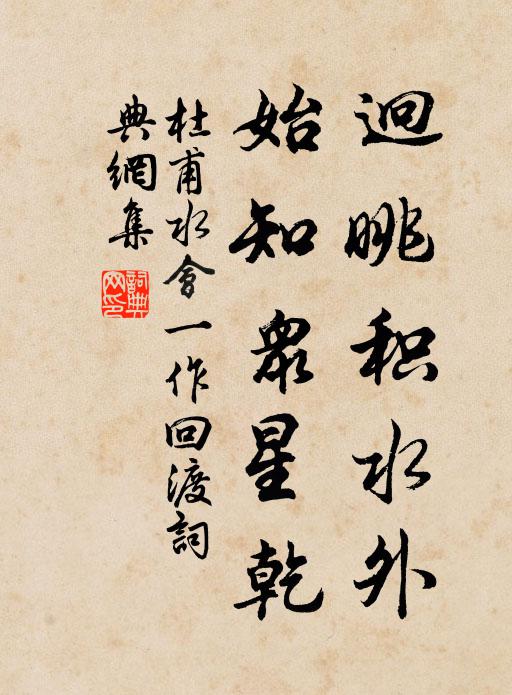 迥眺积水外
始知衆星乾
杜甫水會一作回渡詞
典網集
詞典
网印